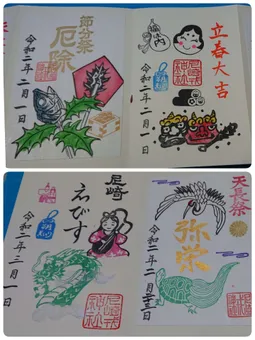 立春大吉
福は内
令和二年二月一日
節分祭
厄除
令和二年二月一日
天長祭
弥栄
令和二年二月二十三日
尼崎
えびす
令和二年三月一日